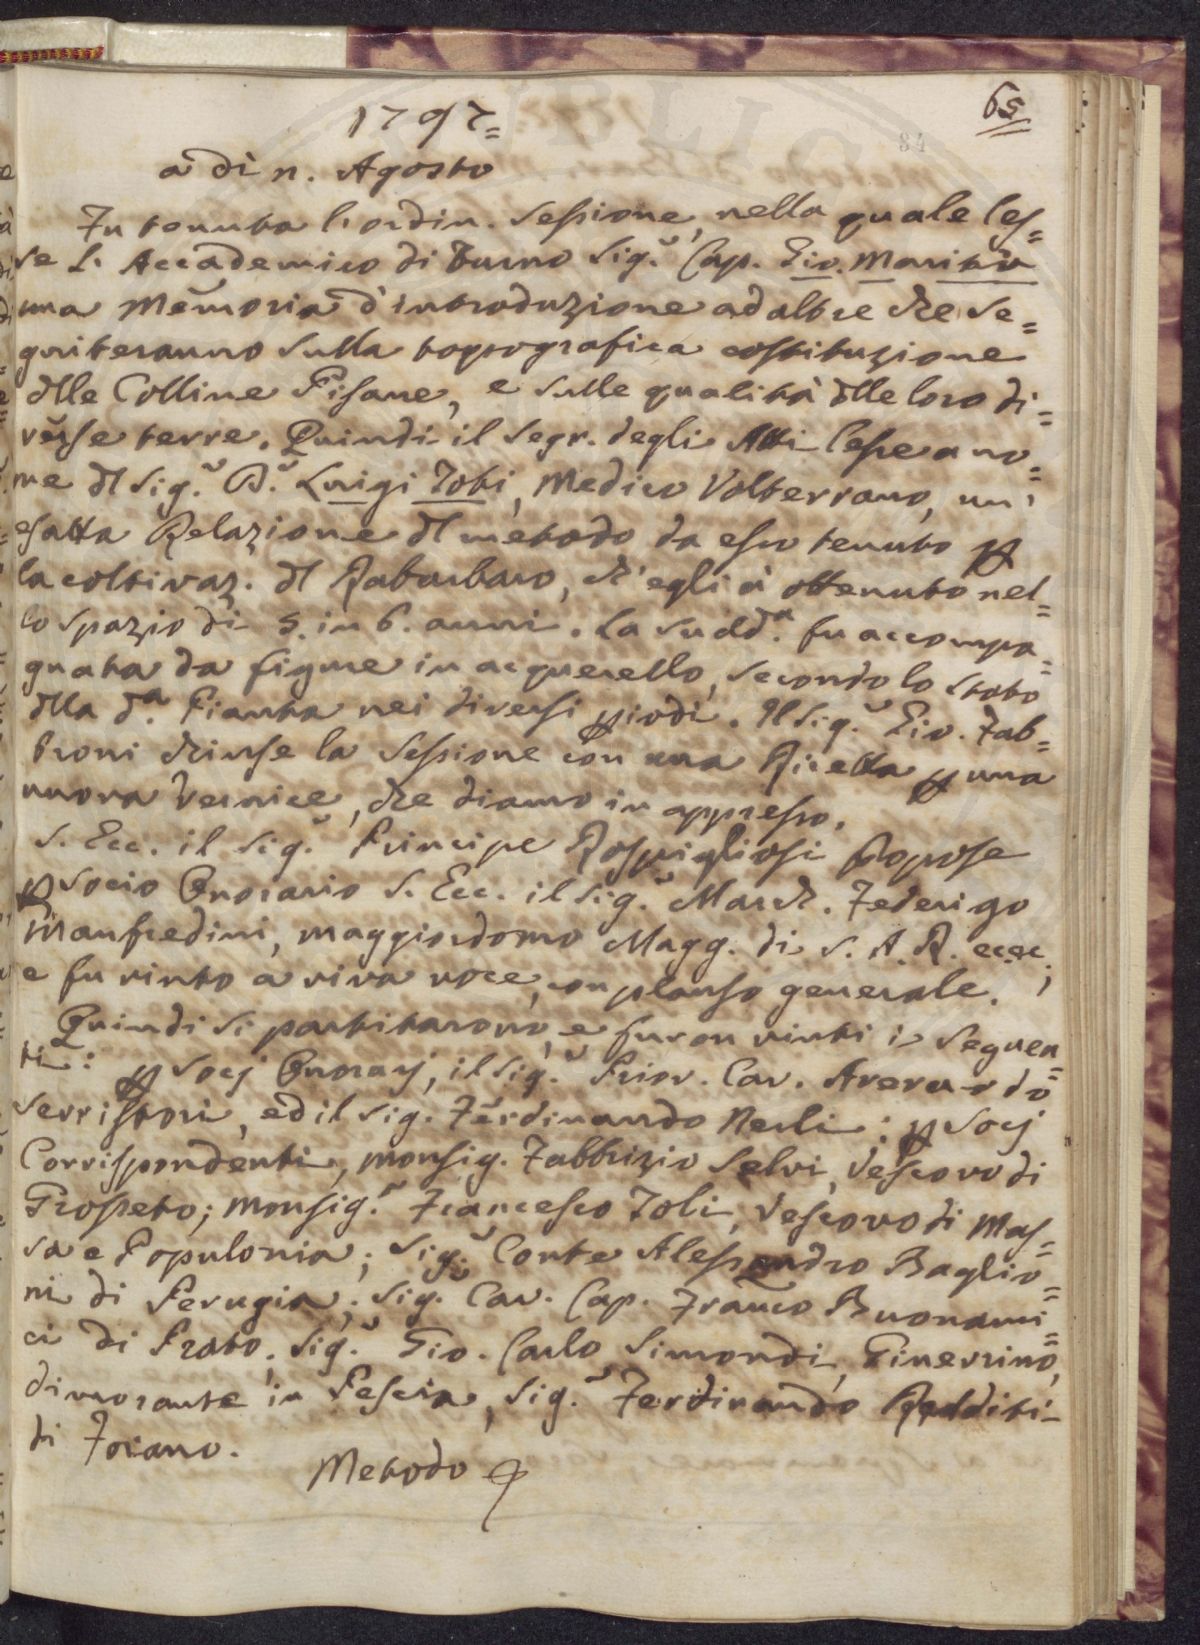 65
84
1797=
a dì n. Agosto
Fu tenuta l'ordin. Sessione, nella quale les=
se l'Accademico di Turno Sig.r Cap. Gio. Mariti
una Memoria d'introduzione ad altre che se=
guiteranno sulla topografica costituzione
dlle Colline Pisane, e sulle qualità dlle loro di=
verse terre. Quindi il Segr. degli Atti lesse a no=
me dl Sig.r D.r Luigi Tobi, Medico Volterrano, un'
esatta Relazione dl metodo da esso tenuto p
la coltivaz. dl Rabarbaro, ch'egli à ottenuto nel=
lo spazio di 5. in 6. anni. La sudd.a fu accompa=
gnata da figure in acquerello, secondo lo stato
dlla d.a Pianta nei diversi piodi. Il Sig.r Gio. Fab=
broni chiuse la Sessione con una Ricetta p una
nuova Vernice, che diamo in appresso.
S. Ecc. il Sig.r Principe Rospigliosi propose
p Socio Onorario S. Ecc. il Sig.r March. Federigo
Manfredini, maggiordomo Magg. di S. A. R. ecec.,
e fu vinto a viva voce, con plauso generale.
Quindi si partitarono, e furon vinti i seguen=
ti: p Socj Onorarj, il Sig.r Prior. Cav. Averardo
Serristori, ed il Sig. Ferdinando Nerli: p Socj
Corrispondenti, Monsig. Fabbrizio Selvi, Vescovo di
Grosseto; Monsig.r Francesco Toli, Vescovo di Mas=
sa e Populonia; Sig.r Conte Alessandro Baglio=
ni di Perugia; Sig. Cav. Cap. Franco Buonami=
ci di Prato, Sig.r Gio. Carlo Simondi, Ginevrino,
dimorante in Pescia, Sig.r Ferdinando Redditi
di Foiano.
Metodo